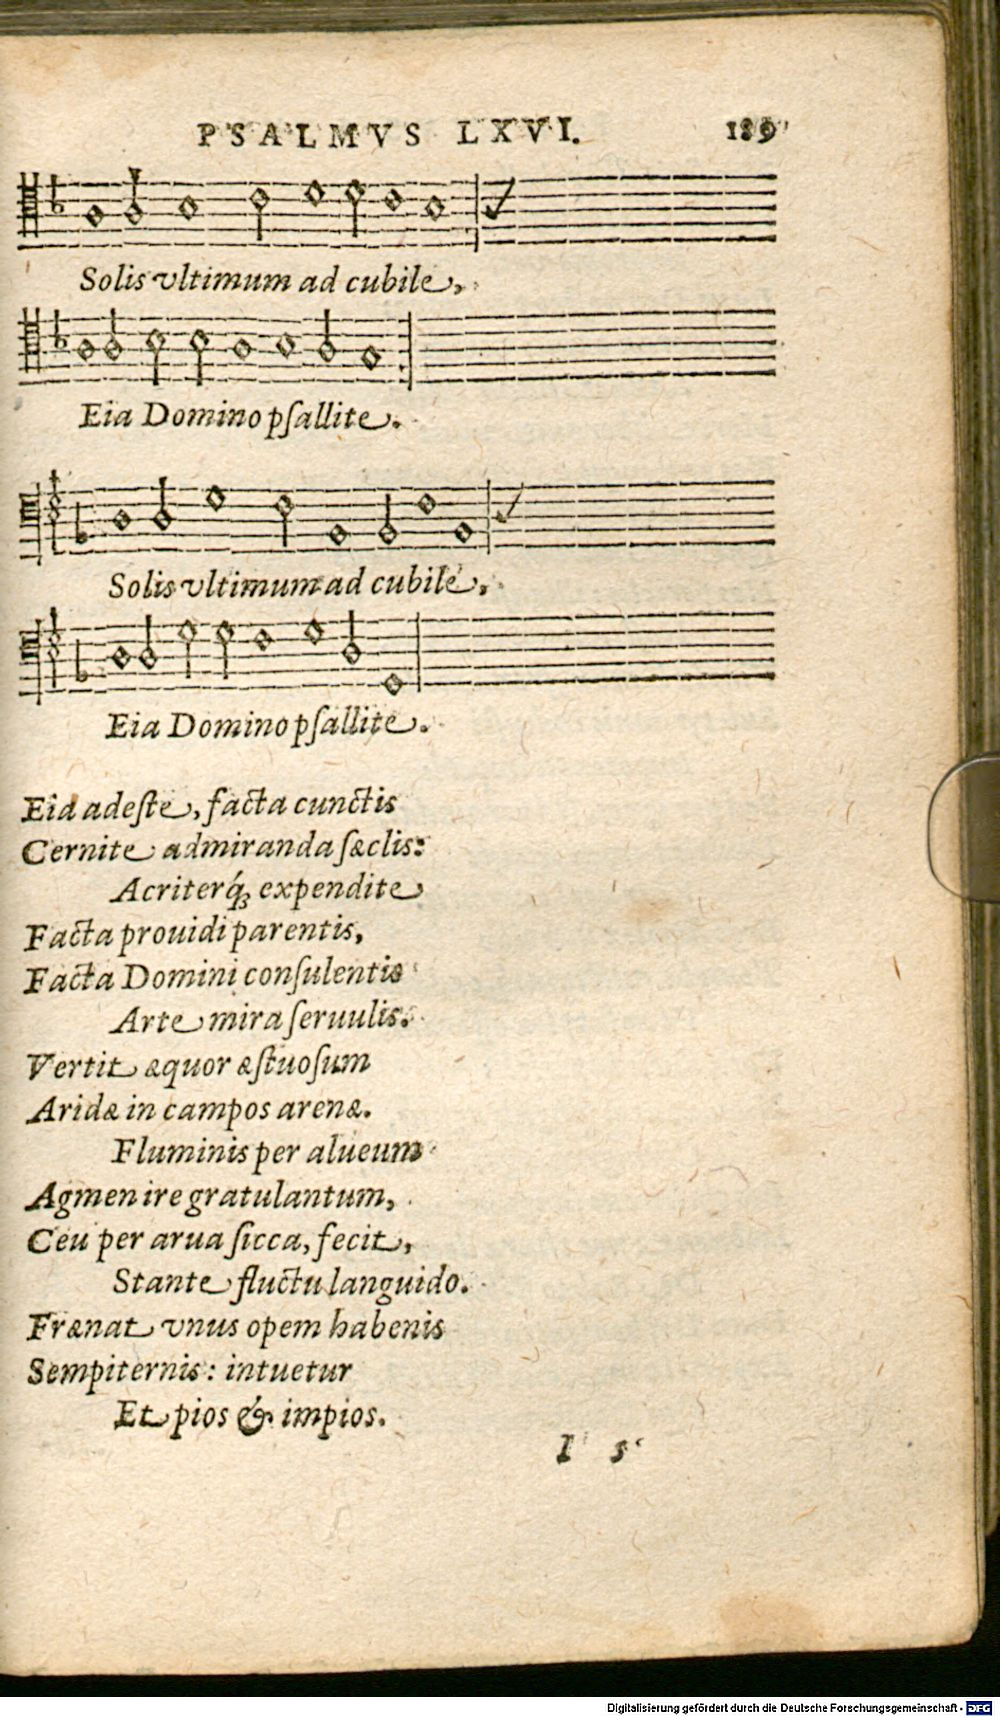 PSALMVS LXVI. 189
Solis vltimum ad cubile,
Eia Domino pſallite.
Solis vltimum ad cubile,
Eia Domino pſallite.
Eia adeſte, facta cunctis
Cernite admiranda ſæclis:
Acriterq́ꝫ expendite
Facta prouidi parentis,
Facta Domini conſulentis
Arte mira ſeruulis.
Vertit æquor æſtuoſum
Aridæ in campos arenæ.
Fluminis per alueum
Agmen ire gratulantum,
Ceu per arua ſicca, fecit,
Stante fluctu languido.
Frænat vnus opem habenis
Sempiternis: intuetur
Et pios & impios.
I 5
Digitalisierung gefördert durch die Deutsche Forschungsgemeinschaft - DFG